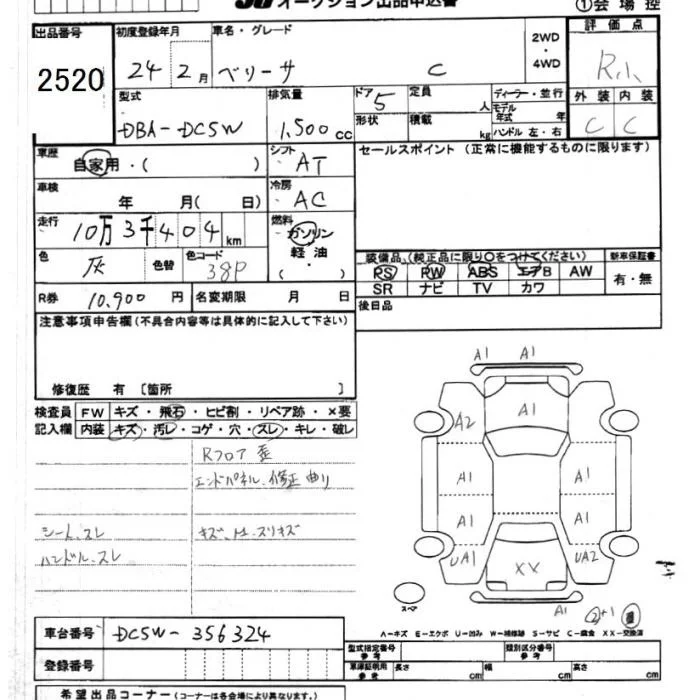 オークション出品申込書
①会場控
出品番号
2520
初度登録年月
24 2月
車名・グレード
ベリーサ C
2WD
・
4WD
評価点
R小
型式
DBA-DC5W
排気量
1,500cc
ドア 5
定員 人
形状
積載 kg
ディーラー・並行
モデル年式 年
ハンドル 左・右
外装 内装
C C
車歴
自家用・( )
シフト AT
セールスポイント(正常に機能するものに限ります)
車検
年 月( 日)
冷房 AC
走行
10万3千404km
燃料
ガソリン
軽油
色 灰
色替
色コード 38P
R券 10,900円
名変期限 月 日
装備品(純正品に限り○をつけてください)
新車保証書
PS PW ABS エアB AW
有・無
SR ナビ TV カワ
後日品
注意事項申告欄(不具合内容等は具体的に記入して下さい)
修復歴 有〔箇所 〕
検査員記入欄
FW キズ・飛石・ヒビ割・リペア跡・×要
内装 キズ・汚レ・コゲ・穴・スレ・キレ・破レ
Rフロア 歪
エンドパネル、修正 曲り
シート、スレ
ハンドル、スレ
A1 A1
A1
A2
A1 A1
A1 A1
UA1 UA2
XX
A1
スペア
A-キズ E-エクボ U-凹み W-補修跡 S-サビ C-腐食 XX-交換済
車台番号
DC5W-356324
登録番号
型式指定番号 参考
類別区分番号 参考
車庫証明用 参考
長さ cm 幅 cm 高さ cm
希望出品コーナー(コーナーは各会場により異なります。)